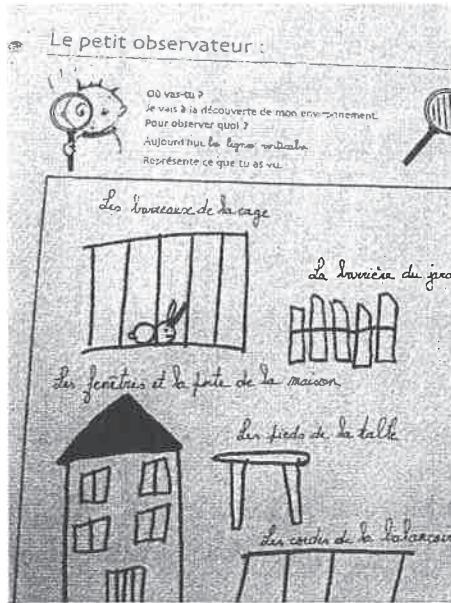 Le petit observateur :
Où vas-tu ?
Je vais à la découverte de mon environnement
Pour observer quoi ?
Aujourd'hui les lignes verticales
Représente ce que tu as vu
Les barreaux de la cage
La barrière du jard
Les fenêtres et la porte de la maison
Les pieds de la table
Les cordes de la balançoir